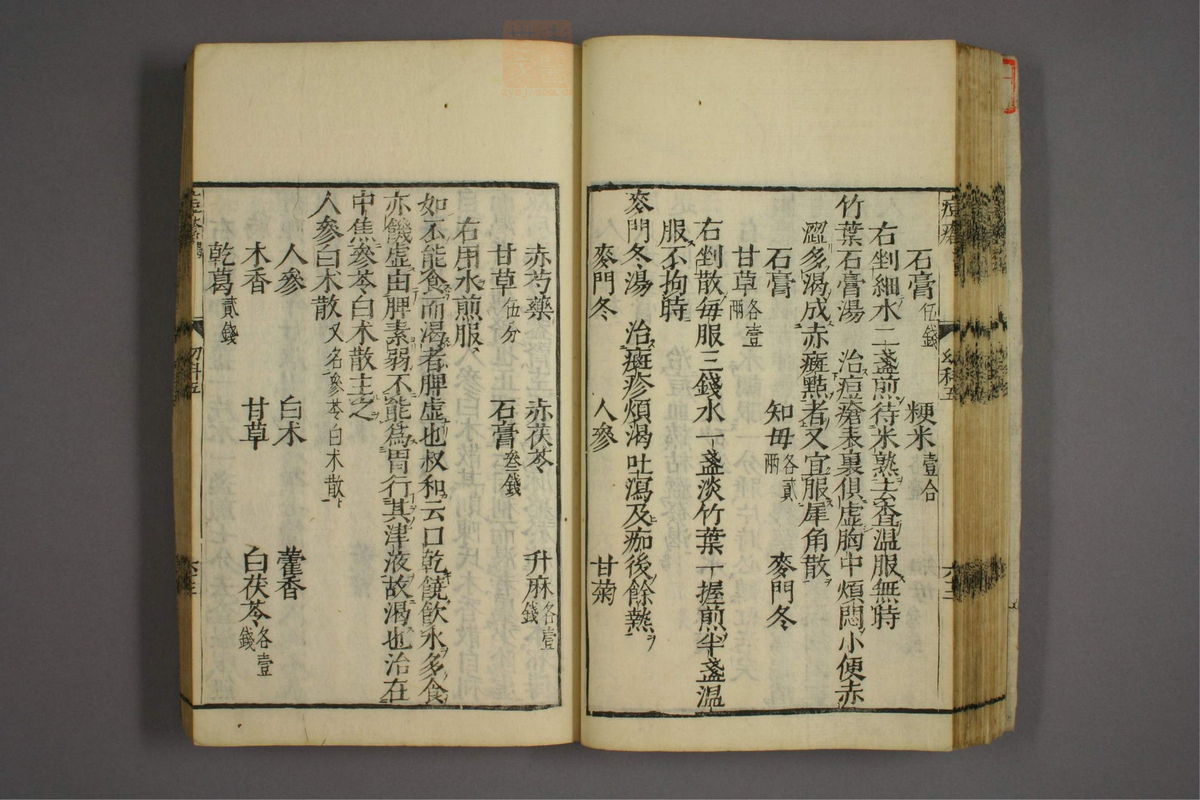 石膏伍錢　粳米壹合
右剉細水二盞煎待米熟去查温服無時
竹葉石膏湯　治痘瘡表裏俱虚胸中煩悶小便赤
澀多渴成赤癍點者又宜服犀角散
石膏　知母各貳兩　麥門冬
甘草各壹兩
右剉散每服三錢水一盞淡竹葉一握煎半盞温
服不拘時
麥門冬湯　治癍疹煩渴吐瀉及痂後餘熱
麥門冬　人參　甘菊
赤芍藥　赤茯苓　升麻各壹錢
甘草伍分　石膏叄錢
右用水煎服
如不能食而渴者脾虚也叔和云口乾饒飲水多食
亦饑虚由脾素弱不能爲胃行其津液故渴也治在
中焦參苓白术散主之
人參白术散又名參苓白术散
人參　白术　藿香
木香　甘草　白茯苓各壹錢
乾葛貳錢